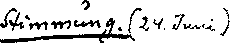 Stimmung. (24. Juni)